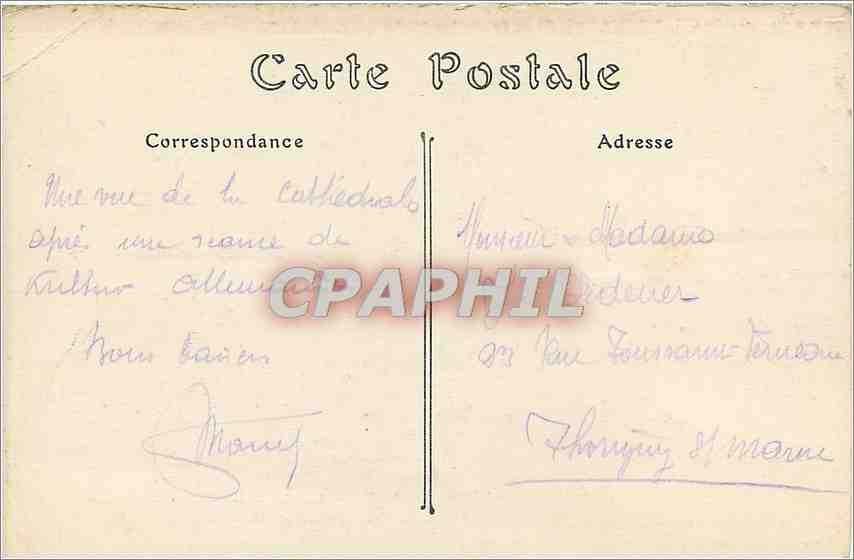 Carte Postale
Correspondance
Adresse
Une vue de la Cathédrale
après une séance de
Kultur allemande
Bons baisers
Monsieur & Madame
CPAPHIL
23 Rue Toussaint
Thorigny s/ marne